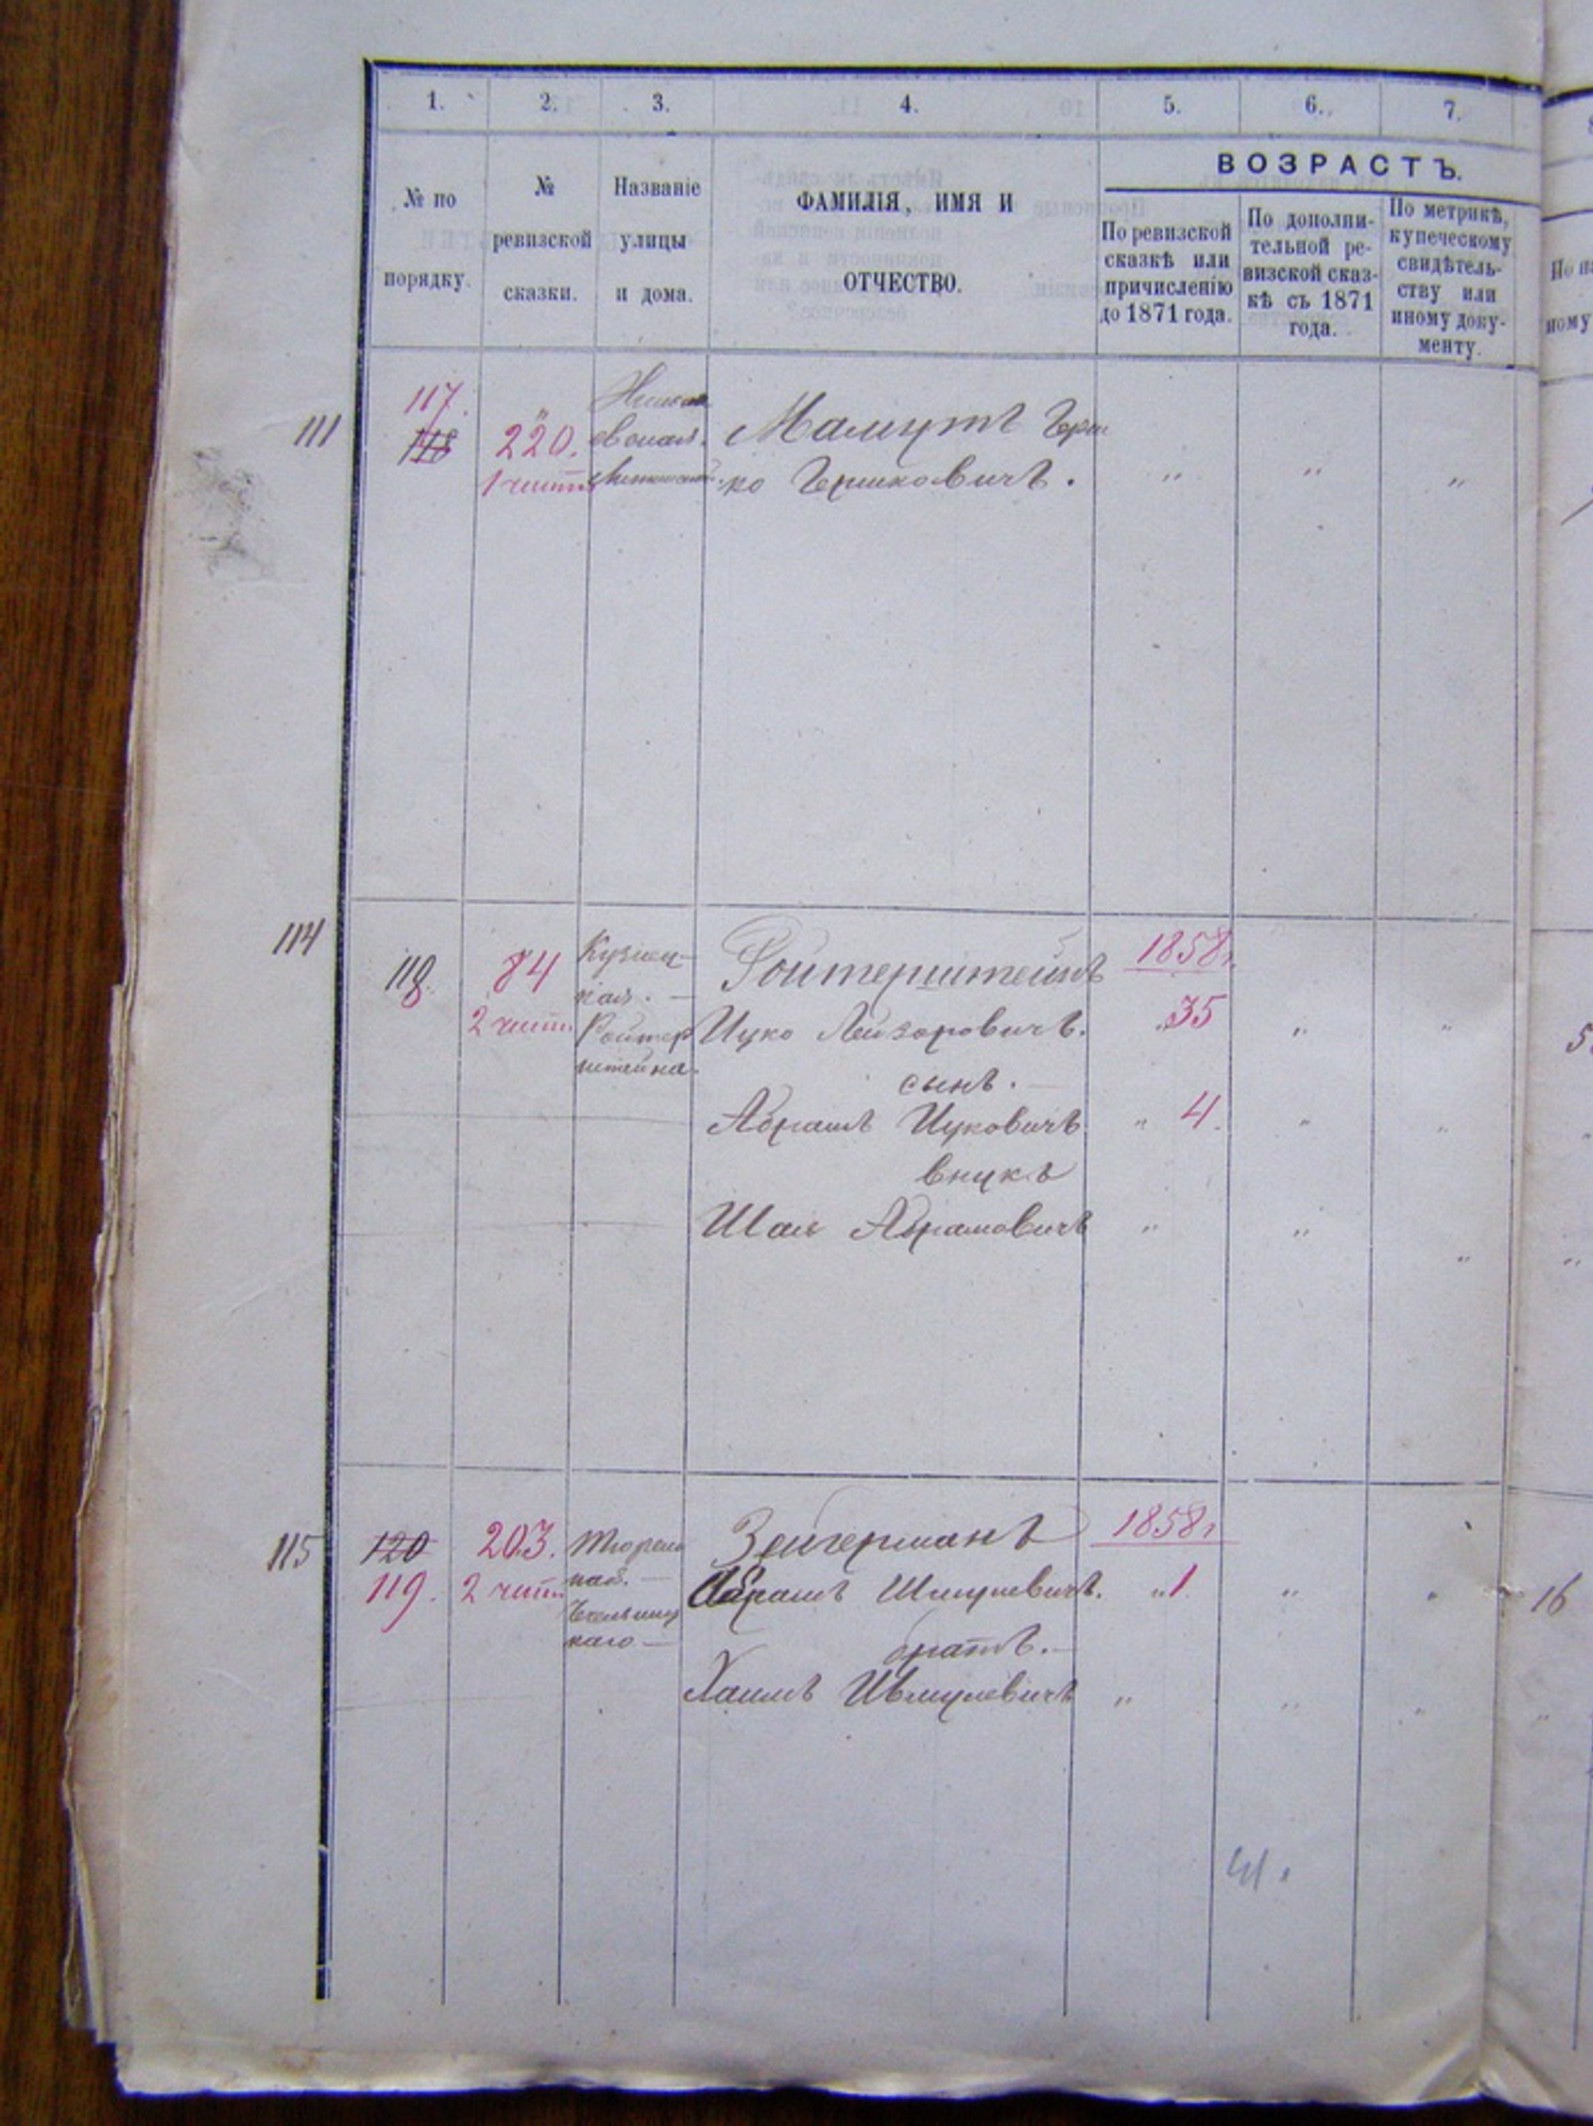 1. 2. 3. 4. 5. 6. 7.
№ по порядку.
№ ревизской сказки.
Названіе улицы и дома.
ФАМИЛІЯ, ИМЯ И ОТЧЕСТВО.
ВОЗРАСТЪ.
По ревизской сказкѣ или причисленію до 1871 года.
По дополни-
тельной ре-
визской сказ-
кѣ съ 1871
года.
По метрикѣ,
купеческому
свидѣтель-
ству или
иному доку-
менту.
111
117.
118
220.
1 части
Мамутъ Герш
ко Гершковичъ.
" " "
114
118.
84
2 части
Кузнец-
кая.
Ройтер
штейна
Ройтерштейнъ
1858 г.
Ицко Лейзоровичъ.
35 " "
сынъ.
Абрамъ Ицковичъ
" 4. " "
внукъ
Шая Абрамовичъ
" " "
115
120
119.
203.
2 части
Тюрем
ная.
Зейгерманъ
1858 г
Абрамъ Шмулевичъ.
" 1 " "
16
братъ.
Хаимъ Шмулевичъ
" " "
41.